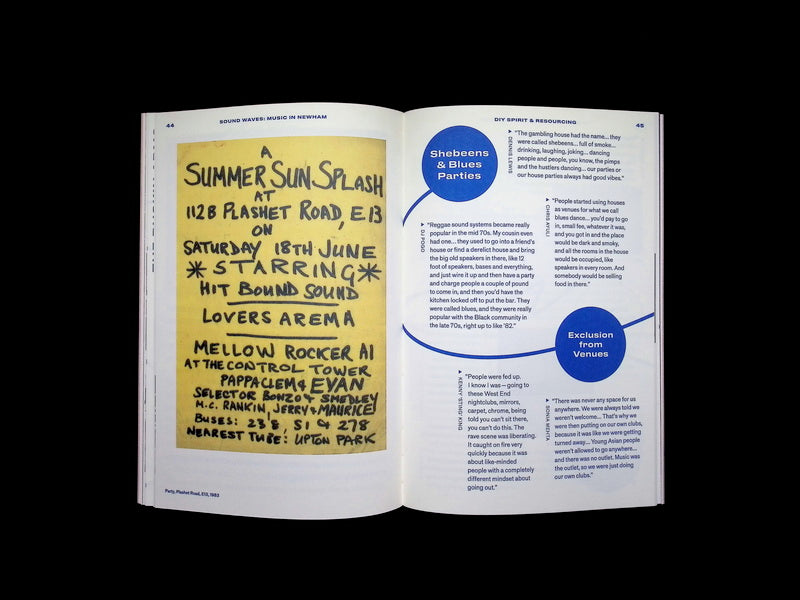 44
SOUND WAVES: MUSIC IN NEWHAM
A
SUMMER SUN SPLASH
AT
112B PLASHET ROAD, E13
ON
SATURDAY 18TH JUNE
*STARRING*
HIT BOUND SOUND
LOVERS AREMA
MELLOW ROCKER A1
AT THE CONTROL TOWER
PAPPACLEM & EVAN
SELECTOR BONZO & SMEDLEY
M.C. RANKIN, JERRY & MAURICE
BUSES: 238, S1 & 278
NEAREST TUBE: UPTON PARK
Party, Plashet Road, E13, 1983
DIY SPIRIT & RESOURCING
45
Shebeens
& Blues
Parties
DENNIS LEWIS
"The gambling house had the name... they
were called shebeens... full of smoke...
drinking, laughing, joking... dancing
people and people, you know, the pimps
and the hustlers dancing... our parties or
our house parties always had good vibes."
DJ POGO
"Reggae sound systems became really
popular in the mid 70s. My cousin even
had one... they used to go into a friend's
house or find a derelict house and bring
the big old speakers in there, like 12
foot of speakers, bases and everything,
and just wire it up and then have a party
and charge people a couple of pound
to come in, and then you'd have the
kitchen locked off to put the bar. They
were called blues, and they were really
popular with the Black community in
the late 70s, right up to like '82."
"People started using houses
as venues for what we call
blues dance... you'd pay to go
in, small fee, whatever it was,
and you got in and the place
would be dark and smoky,
and all the rooms in the house
would be occupied, like
speakers in every room. And
somebody would be selling
food in there."
Exclusion
from
Venues
KENNY 'STIND' KING
"People were fed up.
I know I was – going to
these West End
nightclubs, mirrors,
carpet, chrome, being
told you can't sit there,
you can't do this. The
rave scene was liberating.
It caught on fire very
quickly because it was
about like-minded
people with a completely
different mindset about
going out."
SONIA MEHTA
"There was never any space for us
anywhere. We were always told we
weren't welcome... That's why we
were then putting on our own clubs,
because it was like we were getting
turned away... Young Asian people
weren't allowed to go anywhere...
and there was no outlet. Music was
the outlet, so we were just doing
our own clubs."